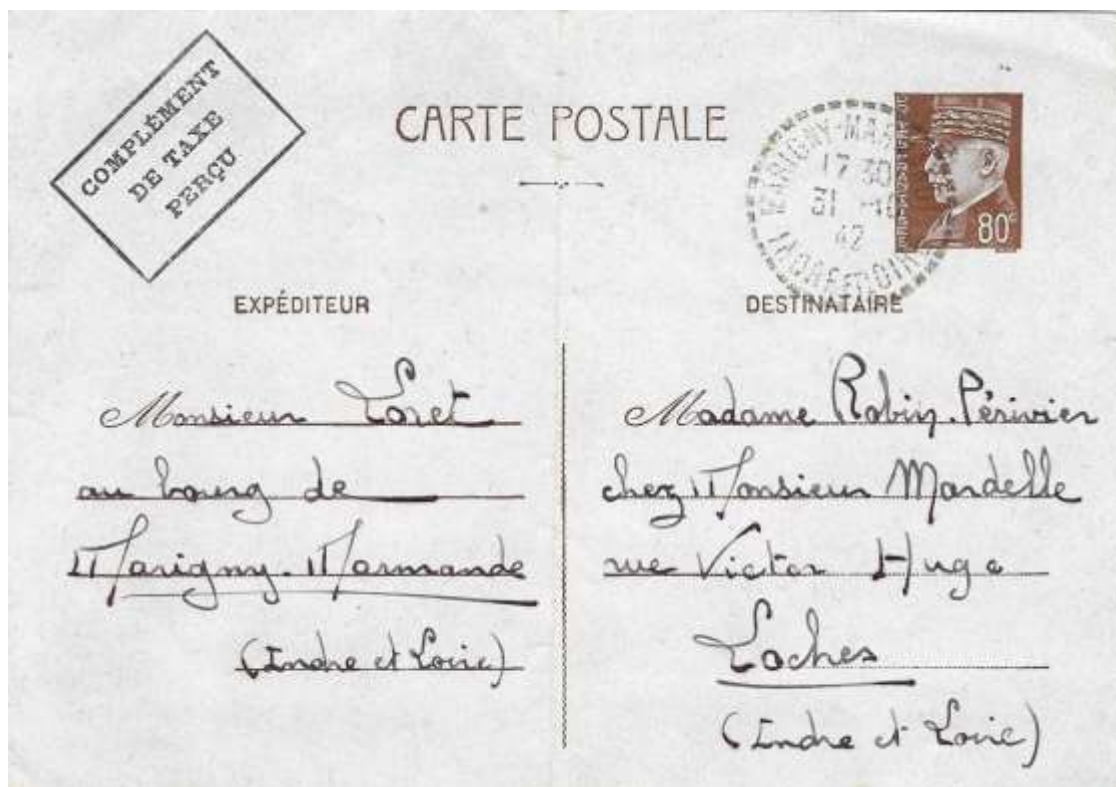 COMPLÉMENT
DE TAXE
PERÇU
CARTE POSTALE
MARIGNY-MA
17 30
42
INDRE ET LOIRE
80c
EXPÉDITEUR
Monsieur Loret
au bourg de
Marigny-Marmande
(Indre et Loire)
DESTINATAIRE
Madame Robin-Périvier
chez Monsieur Mardelle
rue Victor Hugo
Loches
(Indre et Loire)